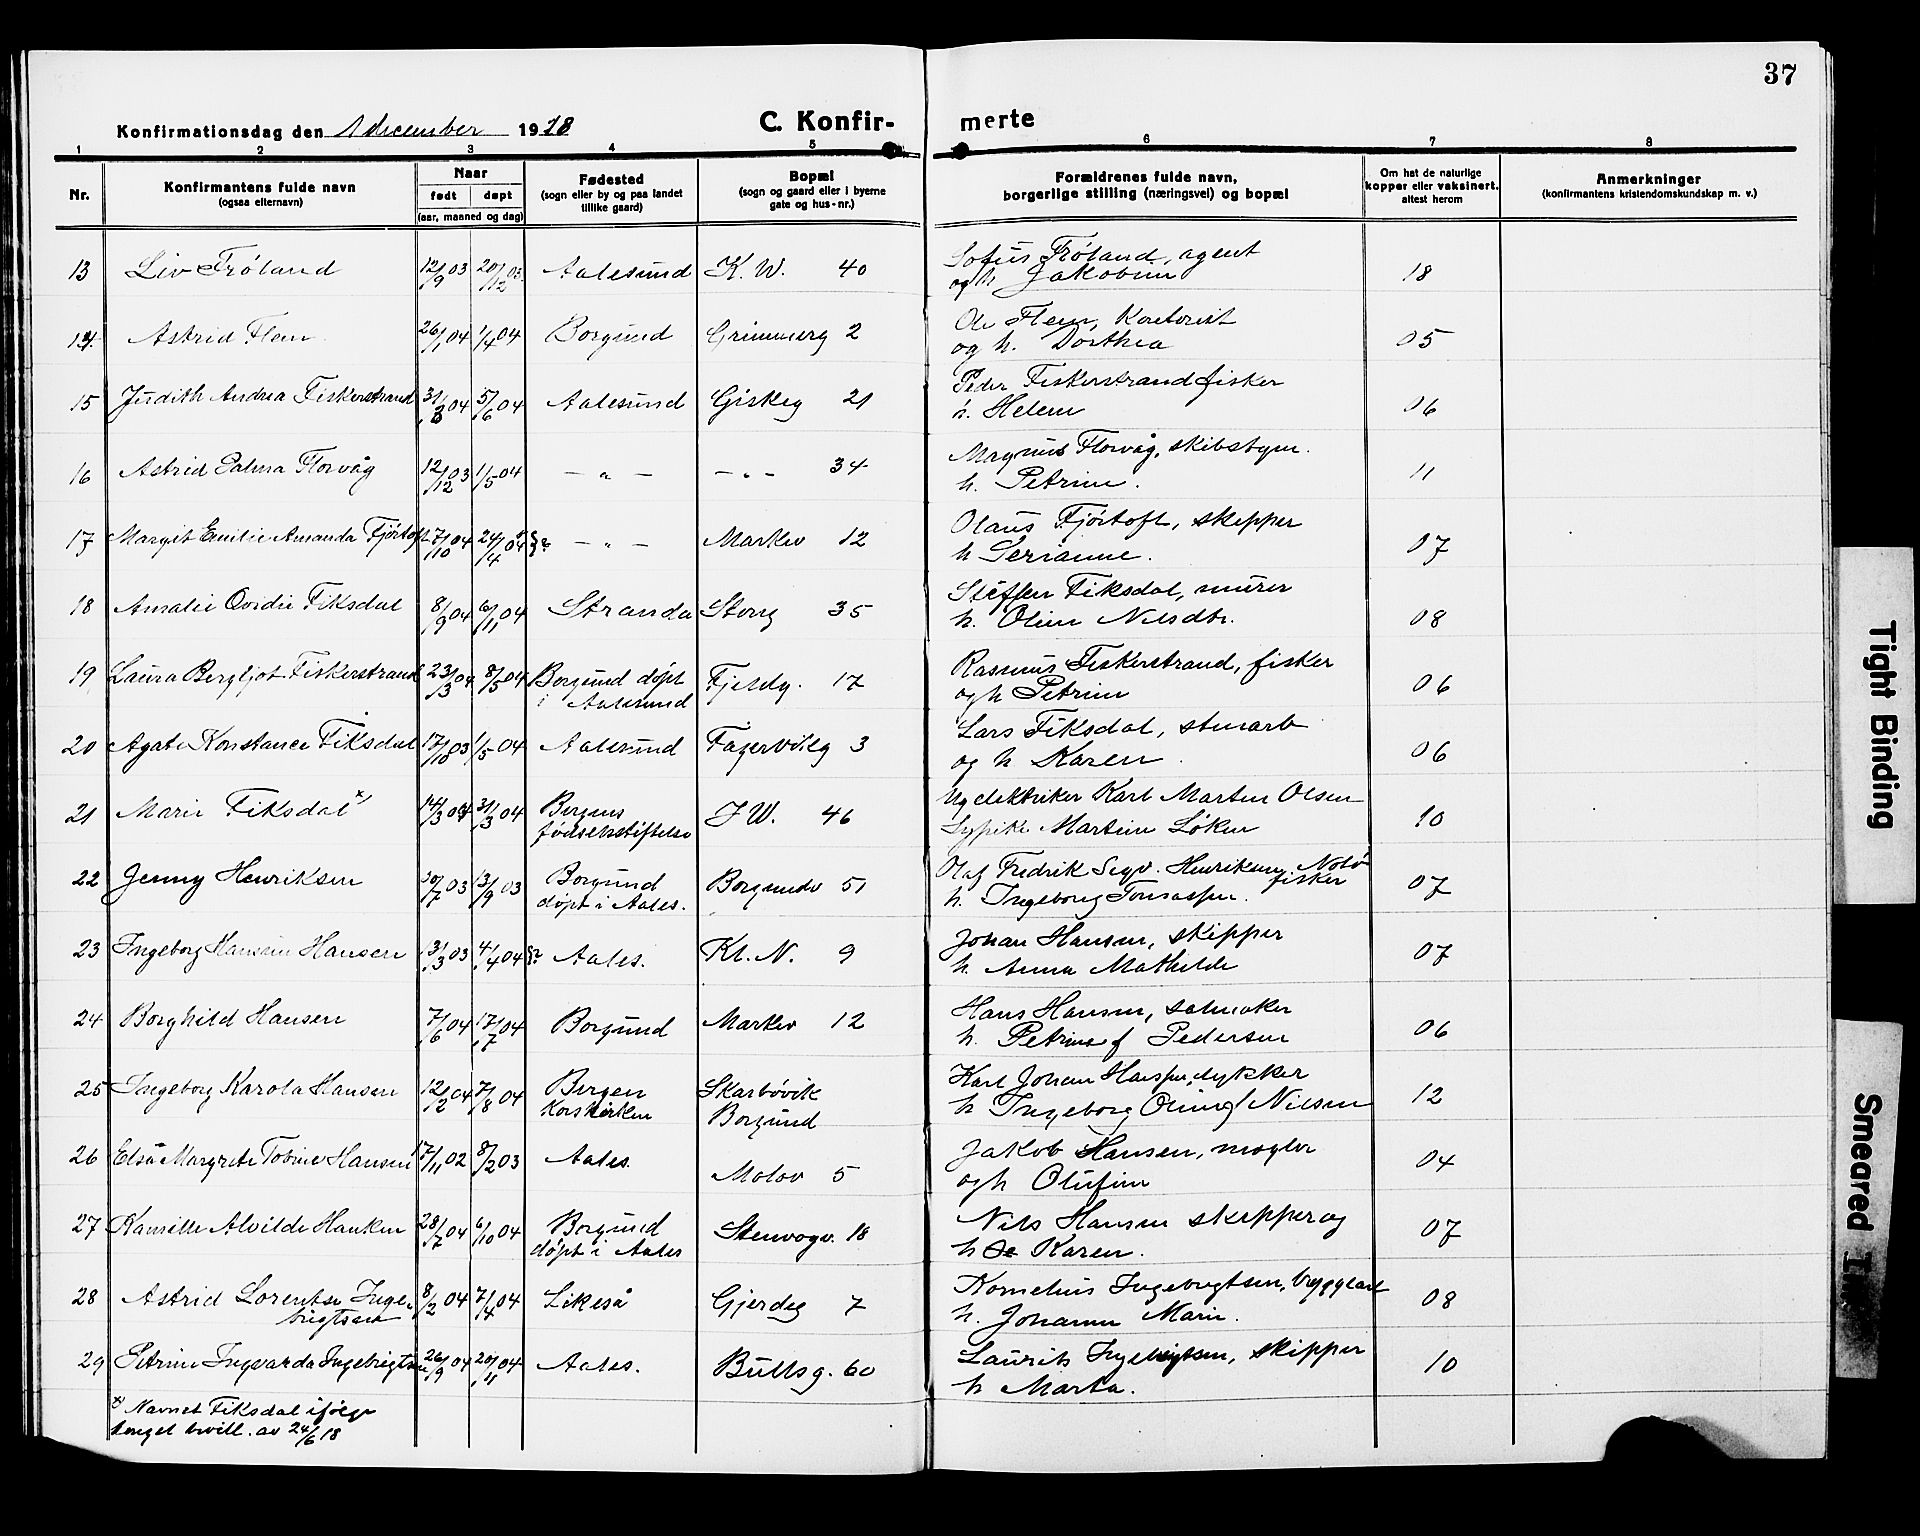 37
Konfirmationsdag den 1 december 1918
C. Konfir- merte
1 2 3 4 5 6 7 8
Nr. Konfirmantens fulde navn (ogsaa etternavn) Naar født døpt (aar, maaned og dag) Fødested (sogn eller by og paa landet tillike gaard) Bopæl (sogn og gaard eller i byerne gate og hus-nr.) Forældrenes fulde navn, borgerlige stilling (næringsvei) og bopæl Om hat de naturlige kopper eller vaksinert. altest herom Anmerkninger (konfirmantens kristendomskundskap m. v.)
13 Liv Frøland 12/9 03 20/12 03. Aalesund K. W. 40 Sofus Frøland, agent
og h Jakobine 18
14. Astrid Flem 26/1 04 1/4 04 Borgund Grimmerg 2 Ole Flem, Kontorist
og h. Dorthea 05
15 Judith Andrea Fiskerstrand 31/3 04 5/6 04 Aalesund Giskeg 21 Peder Fiskerstrand fisker
h. Helene 06
16 Astrid Palma Florvåg 12/12 03 1/5 04 - " - - " - 34 Magnus Florvåg, skibstym.
h. Petrine. 11
17 Margit Emilie Amanda Fjørtoft 27/10 04 24/4 04 - " - Markev 12 Olaus Fjørtoft, skipper
h Serianne. 07
18 Amalie Ovidie Fiksdal 8/9 04 6/11 04 Stranda Storg 35 Steffen Fiksdal, murer
h. Oline Nilsdtr. 08
19 Laura Bergljot Fiskerstrand 23/3 04 8/5 04 Borgund døpt
i Aalesund Fjeldg. 17 Rasmus Fiskerstrand, fisker
og h Petrine 06
20 Agate Konstance Fiksdal 17/10 03 1/5 04 Aalesund Fagerheimg 3 Lars Fiksdal, stenarb
og h Karen. 06
21 Marie Fiksdal x) 14/3 04 31/3 04 Bergens
fødselsstiftelse J W. 46 Ug elektriker Karl Martin Olsen
Sypike Martine Løken 10
22 Jenny Henriksen 30/7 03 13/9 03 Borgund
døpt i Aales. Borgundv 51 Olaf Fredrik Segv. Henriksen
fisker
h. Ingeborg Tomassen. 07
23 Ingeborg Hansine Hansen 13/3 03 4/4 04 Aales. Kl. N. 9 Johan Hansen, skipper
h. Anna Mathilde 07
24 Borghild Hansen 7/6 04 17/7 04 Borgund Markev 12 Hans Hansen, salmaker
h. Petrine f Pedersen 06
25 Ingeborg Karola Hansen 12/2 04 7/8 04 Bergen
Korskirken Skarbøvik
Borgund Karl Johan Hansen, dykker
h Ingeborg Oline f Nilsen 12
26 Elsa Margrete Tobine Hansen 17/11 02 8/2 03 Aales. Molov 5 Jakob Hansen, mægler
og h Olufine 04
27 Kamille Alvilde Hanken 28/7 04 6/10 04 Borgund
døpt i Aales Stenvogv. 18 Nils Hansen skipper og
h Karen. 07
28 Astrid Lorentse Inge-
brigtsen 8/2 04 7/4 04 Likeså Gjerdeg 7 Kornelius Ingebrigtsen, bryggearb
h. Johanne Marie. 08
29 Petrine Ingvarda Ingebrigtsen 26/9 04 20/11 04 Aales. Bullsg. 60 Laurits Ingebrigtsen, skipper
h Marta. 10
x) Navnet Fiksdal ifølge
konget bevill. av 24/6 18
Tight Binding
Smeared